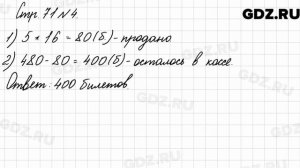 GDZ.RU
Стр. 71 № 4
1) 5 * 16 = 80 (б) - продано
2) 480 - 80 = 400 (б) - осталось в кассе.
Ответ: 400 билетов.